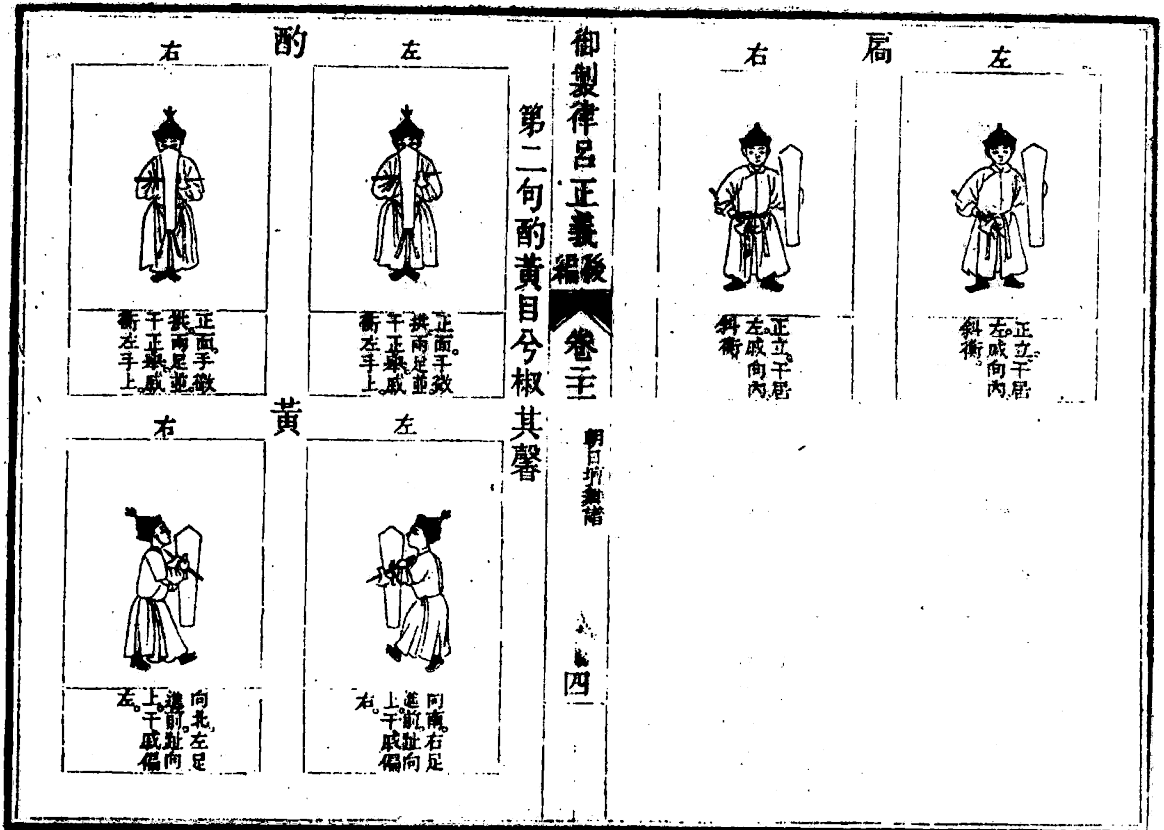 扃
左
正立。干居
左。戚向內
斜衡。
右
正立。干居
左。戚向內
斜衡。
御製律呂正義後編
卷三十
朝日壇舞譜
四
第二句酌黃目兮椒其馨
酌
左
正面。手微
拱。兩足並。
干正舉。戚
衡左手上。
右
正面。手微
拱。兩足並。
干正舉。戚
衡左手上。
黃
左
向南。右足
進前。趾向
上。干戚偏
右。
右
向北。左足
進前。趾向
上。干戚偏
左。